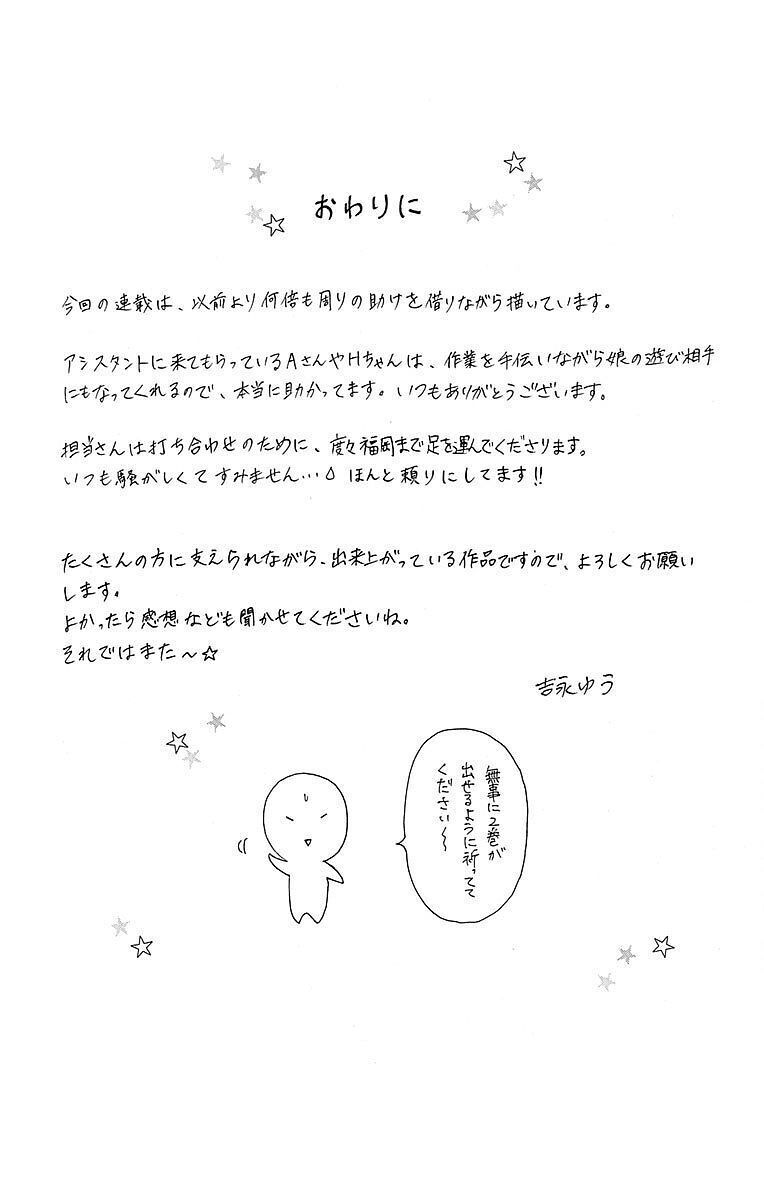 おわりに
今回の連載は、以前より何倍も周りの助けを借りながら描いています。
アシスタントに来てもらっているAさんやHちゃんは、作業を手伝いながら娘の遊び相手
にもなってくれるので、本当に助かってます。いつもありがとうございます。
担当さんは打ち合わせのために、度々福岡まで足を運んでくださります。
いつも騒がしくてすみません…💧ほんと頼りにしてます!!
たくさんの方に支えられながら、出来上がっている作品ですので、よろしくお願い
します。
よかったら感想なども聞かせてくださいね。
それではまた〜☆
吉永ゆう
無事に2巻が
出せるように祈ってて
ください〜